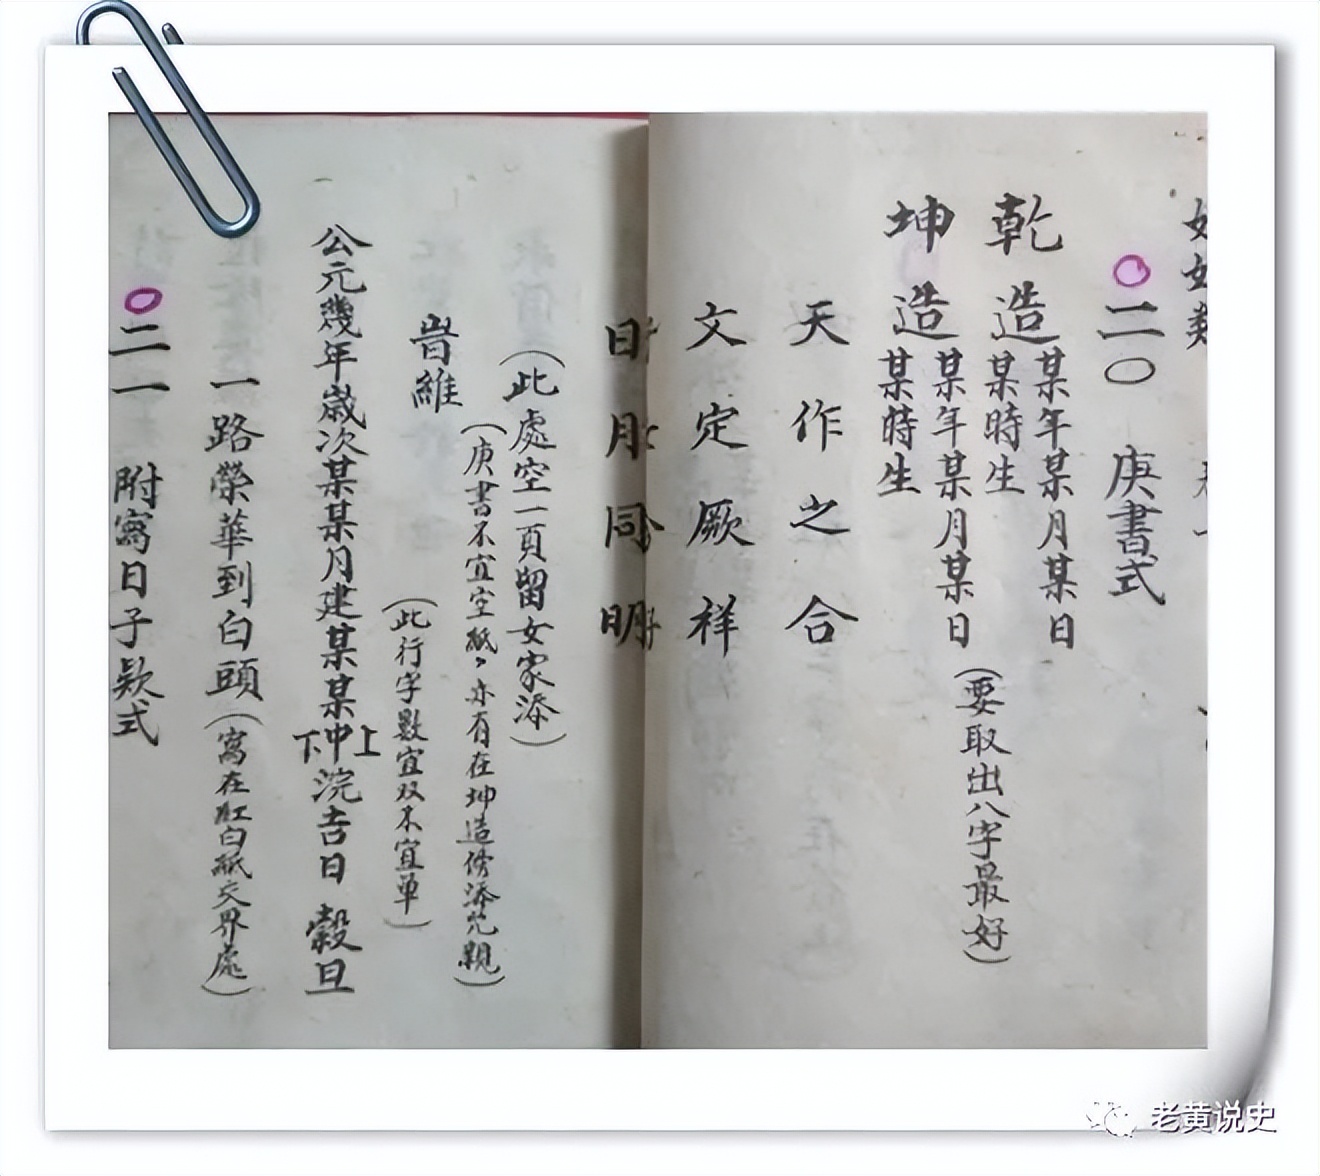 〇二〇 庚書式
乾造某年某月某日
某時生
坤造某年某月某日
某時生
(要取出八字最好)
天作之合
文定厥祥
日月同明
(此處空一頁留女家添)
(庚書不宜空紙,亦有在坤造傍添允親)
旹維
(此行字數宜双不宜单)
公元幾年歲次某某月建某某上中下浣吉日 穀旦
一路榮華到白頭(寫在紅白紙交界處)
〇二一 附寫日子欵式
老黄说史